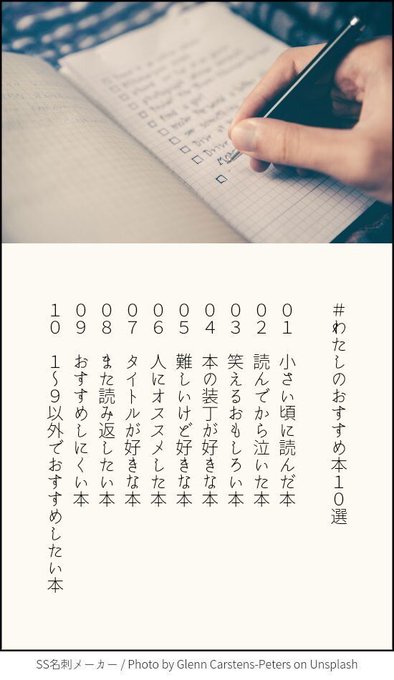 #わたしのおすすめ本10選
01 小さい頃に読んだ本
02 読んでから泣いた本
03 笑えるおもしろい本
04 本の装丁が好きな本
05 難しいけど好きな本
06 人にオススメした本
07 タイトルが好きな本
08 また読み返したい本
09 おすすめしにくい本
10 1〜9以外でおすすめしたい本
SS名刺メーカー / Photo by Glenn Carstens-Peters on Unsplash